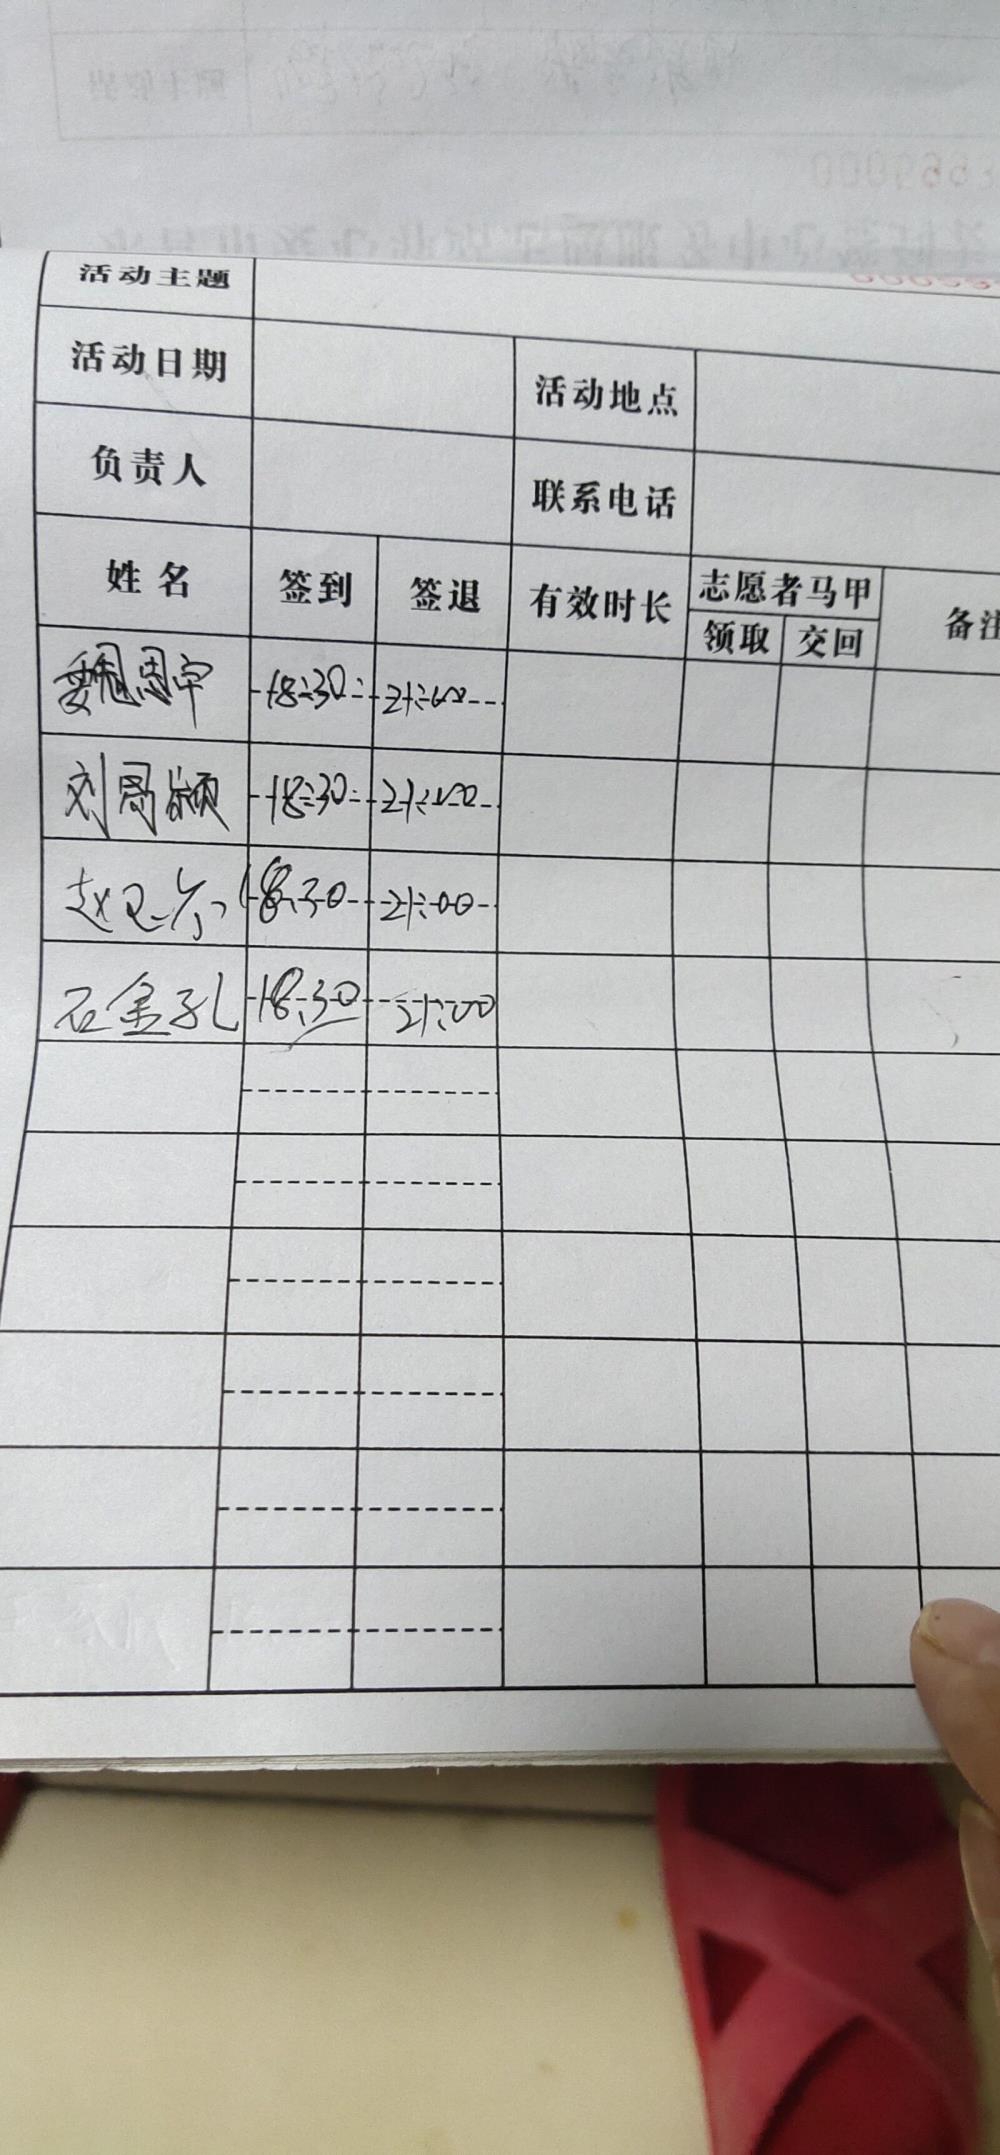 活动主题
活动日期 活动地点
负责人 联系电话
姓名 签到 签退 有效时长 志愿者马甲 备注
领取 交回
魏恩宇 18:30 21:00
刘周颖 18:30 21:00
赵卫东 18:30 21:00
石金孔 18:30 21:00